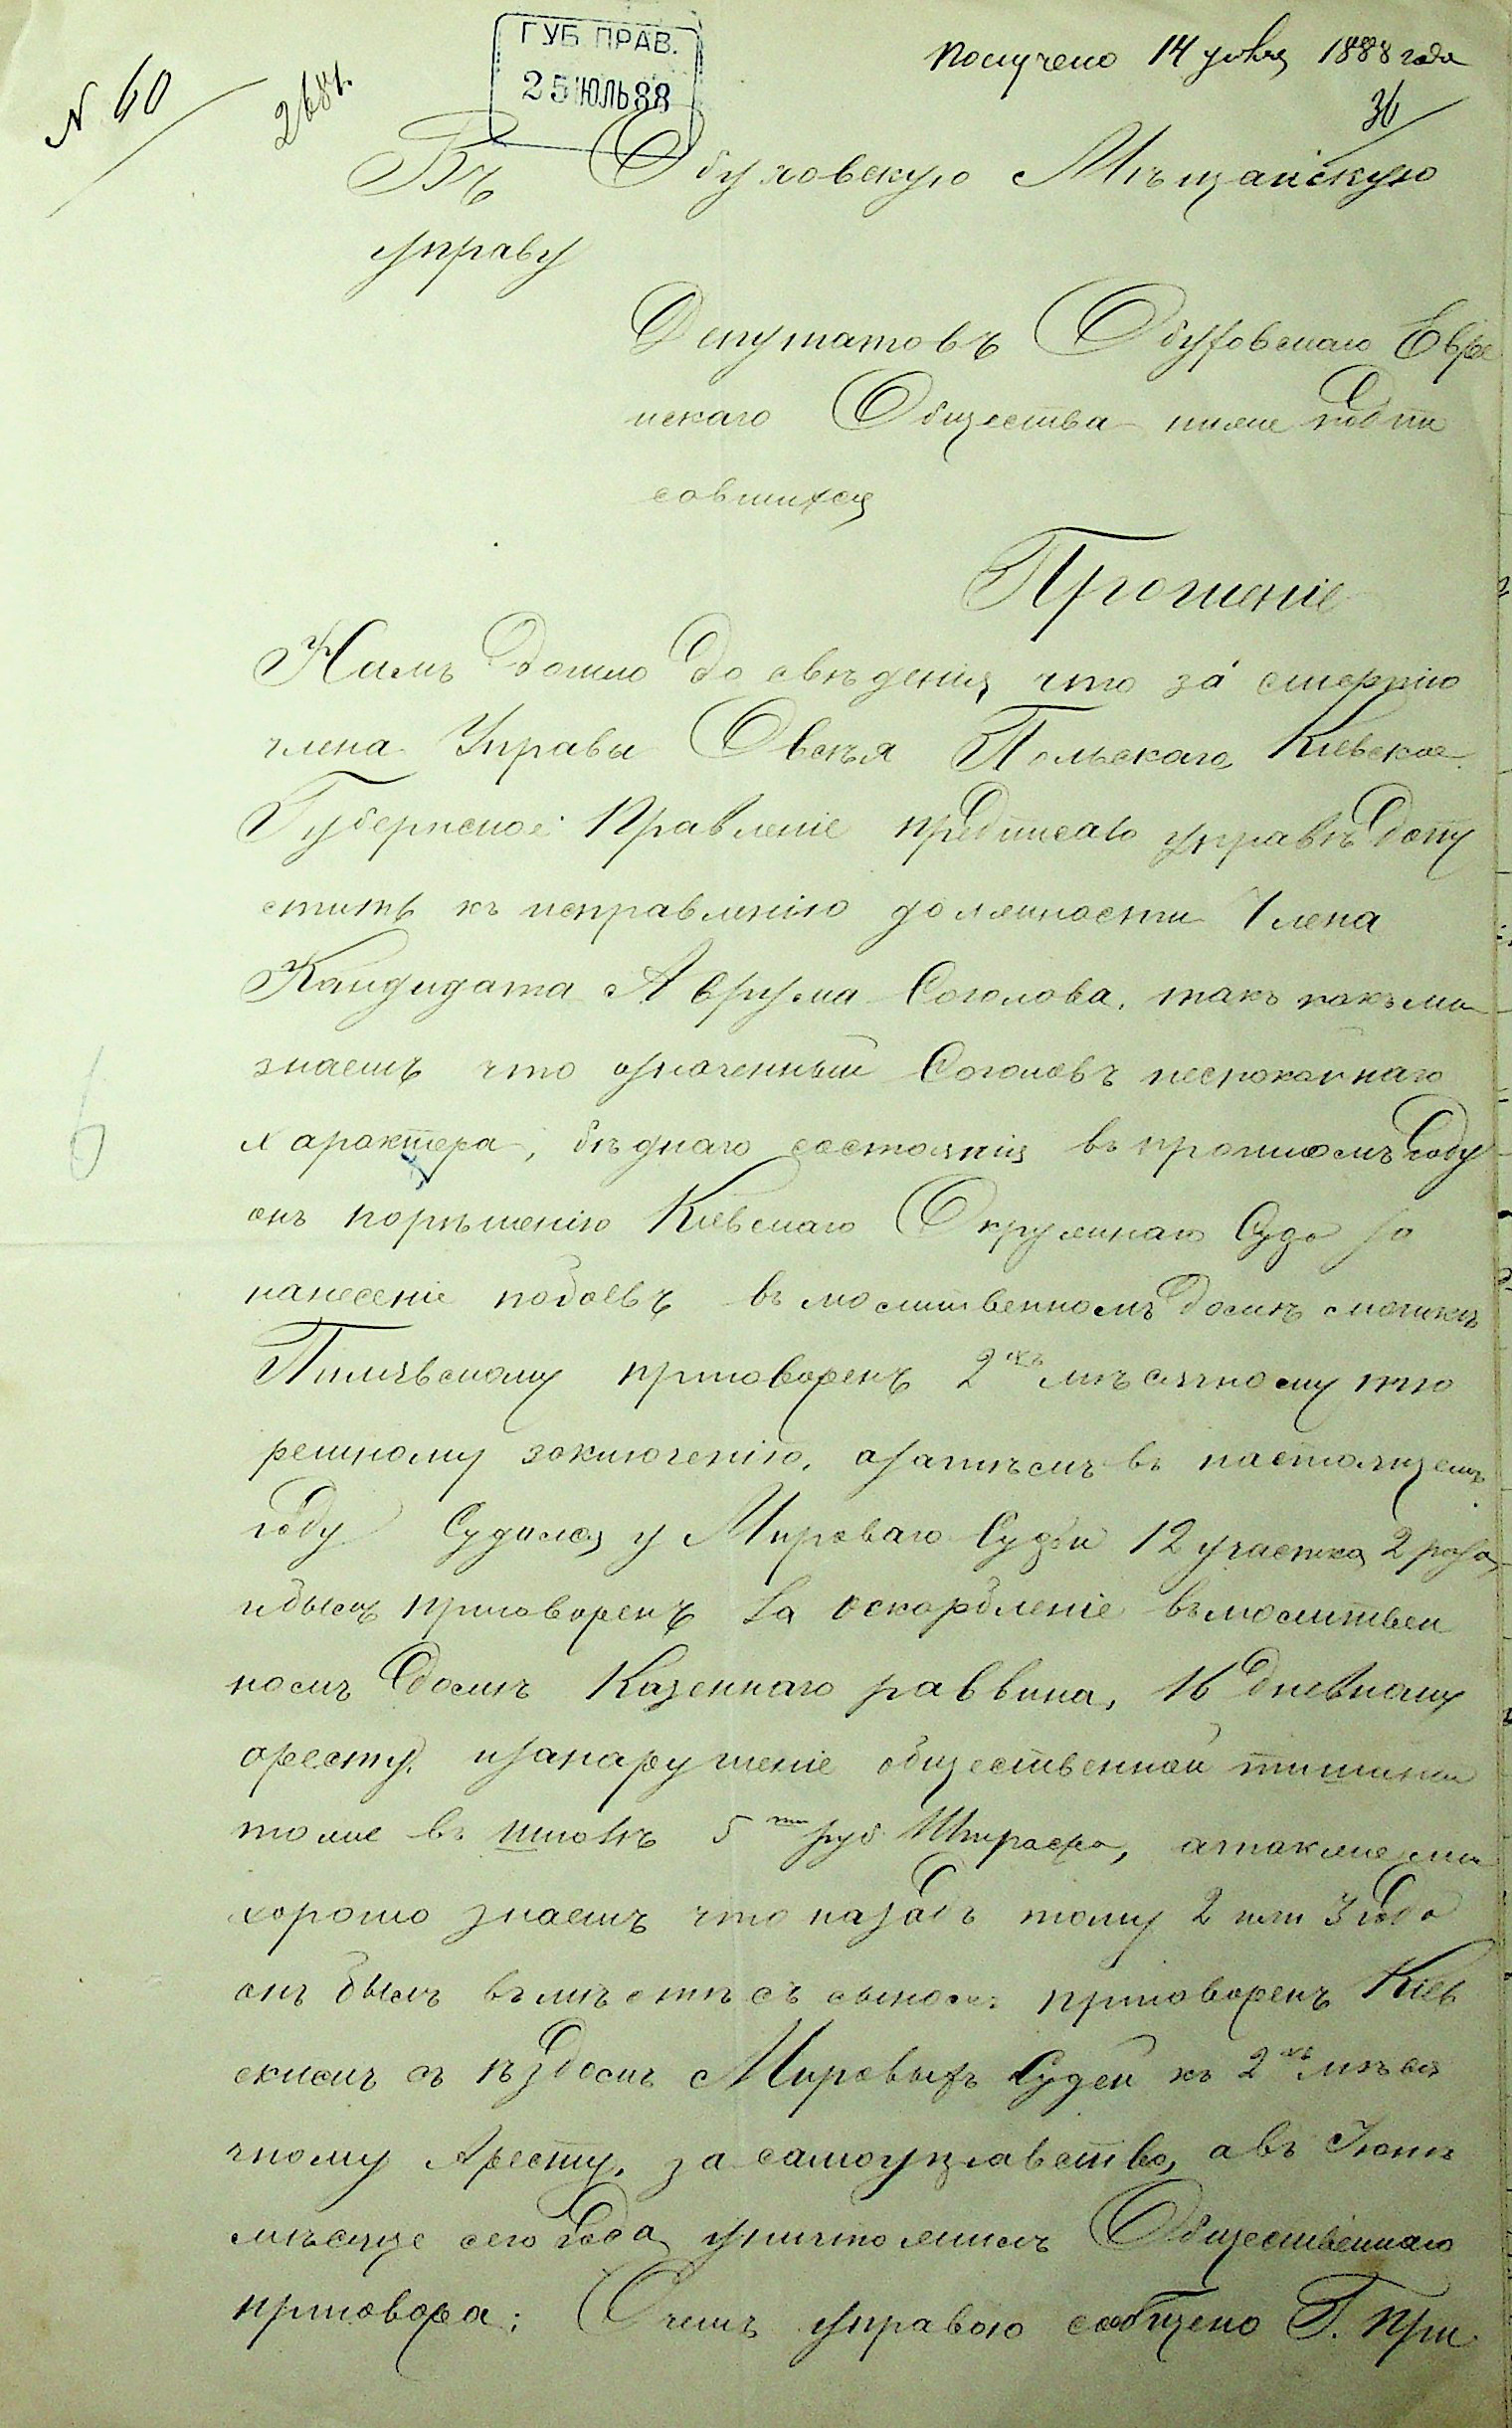 Получено 14 Июля 1888 года
ГУБ. ПРАВ.
25 ИЮЛЬ 88
N 60
2681.
36
Въ Обуховскую Мѣщанскую
управу
Депутатовъ Обуховскаго Евре
йскаго Общества ниже подпи
савшихся
Прошеніе
Намъ дошло до свѣденія что за смертію
члена Управы Овсѣя Польскаго Кіевское
Губернское Правленіе предписало управѣ допу
стить къ исправлѣнію должности Члена
Кандидата Аврума Соголова, такъ какъ мы
знаемъ что означенный Соголовъ неспокойнаго
характера, бѣднаго состоянія въ прошломъ году
онъ порѣшенію Кіевскаго Окружнаго Суда за
нанесеніе побоевъ въ молитвенномъ домѣ
приговоренъ 2хъ мѣсячному тю
ремному заключенію, азатѣмъ въ настоящемъ
году Судился у Мироваго Судьи 12 участка 2 раза,
ибылъ приговоренъ за оскорбленіе въмолитвен
номъ домѣ Казеннаго раввина, 16 дневному
аресту, изанарушеніе общественной тишины
тоже въ школѣ 5ти руб Штрафа, атакже мы
хорошо знаемъ что назадъ тому 2 или 3 года
онъ былъ вмѣстѣ съ сыномъ приговоренъ Кіев
скимъ съѣздомъ Мировыхъ Судей къ 2хъ мѣся
чному Аресту, за самоуправство, авъ Іюнѣ
мѣсяце сего года уничтожилъ Общественнаго
приговора; Очемъ управою сообщено Г. При